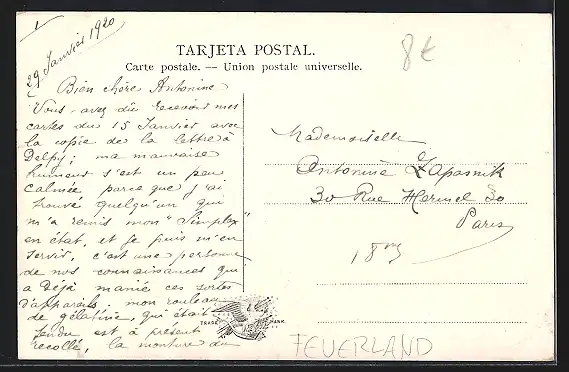 1
29 Janvier 1920
8€
TARJETA POSTAL.
Carte postale. — Union postale universelle.
Bien chère Antonine
Vous avez dû recevoir mes
cartes du 15 Janvier avec
la copie de la lettre à
Delpy; ma mauvaise
humeur s'est un peu
calmée parce que j'ai
trouvé quelqu'un qui
m'a remis mon "Simplex"
en état, et je puis m'en
servir, c'est une personne
de nos connaissances qui
a Déjà manié ces sortes
d'appareils. mon rouleau
de gélatine, qui était
fendu est à présent
recollé, la monture du
Mademoiselle
Antonine Zapasnik
30 Rue Hermel 30
Paris
18
TRADE MARK
FEUERLAND